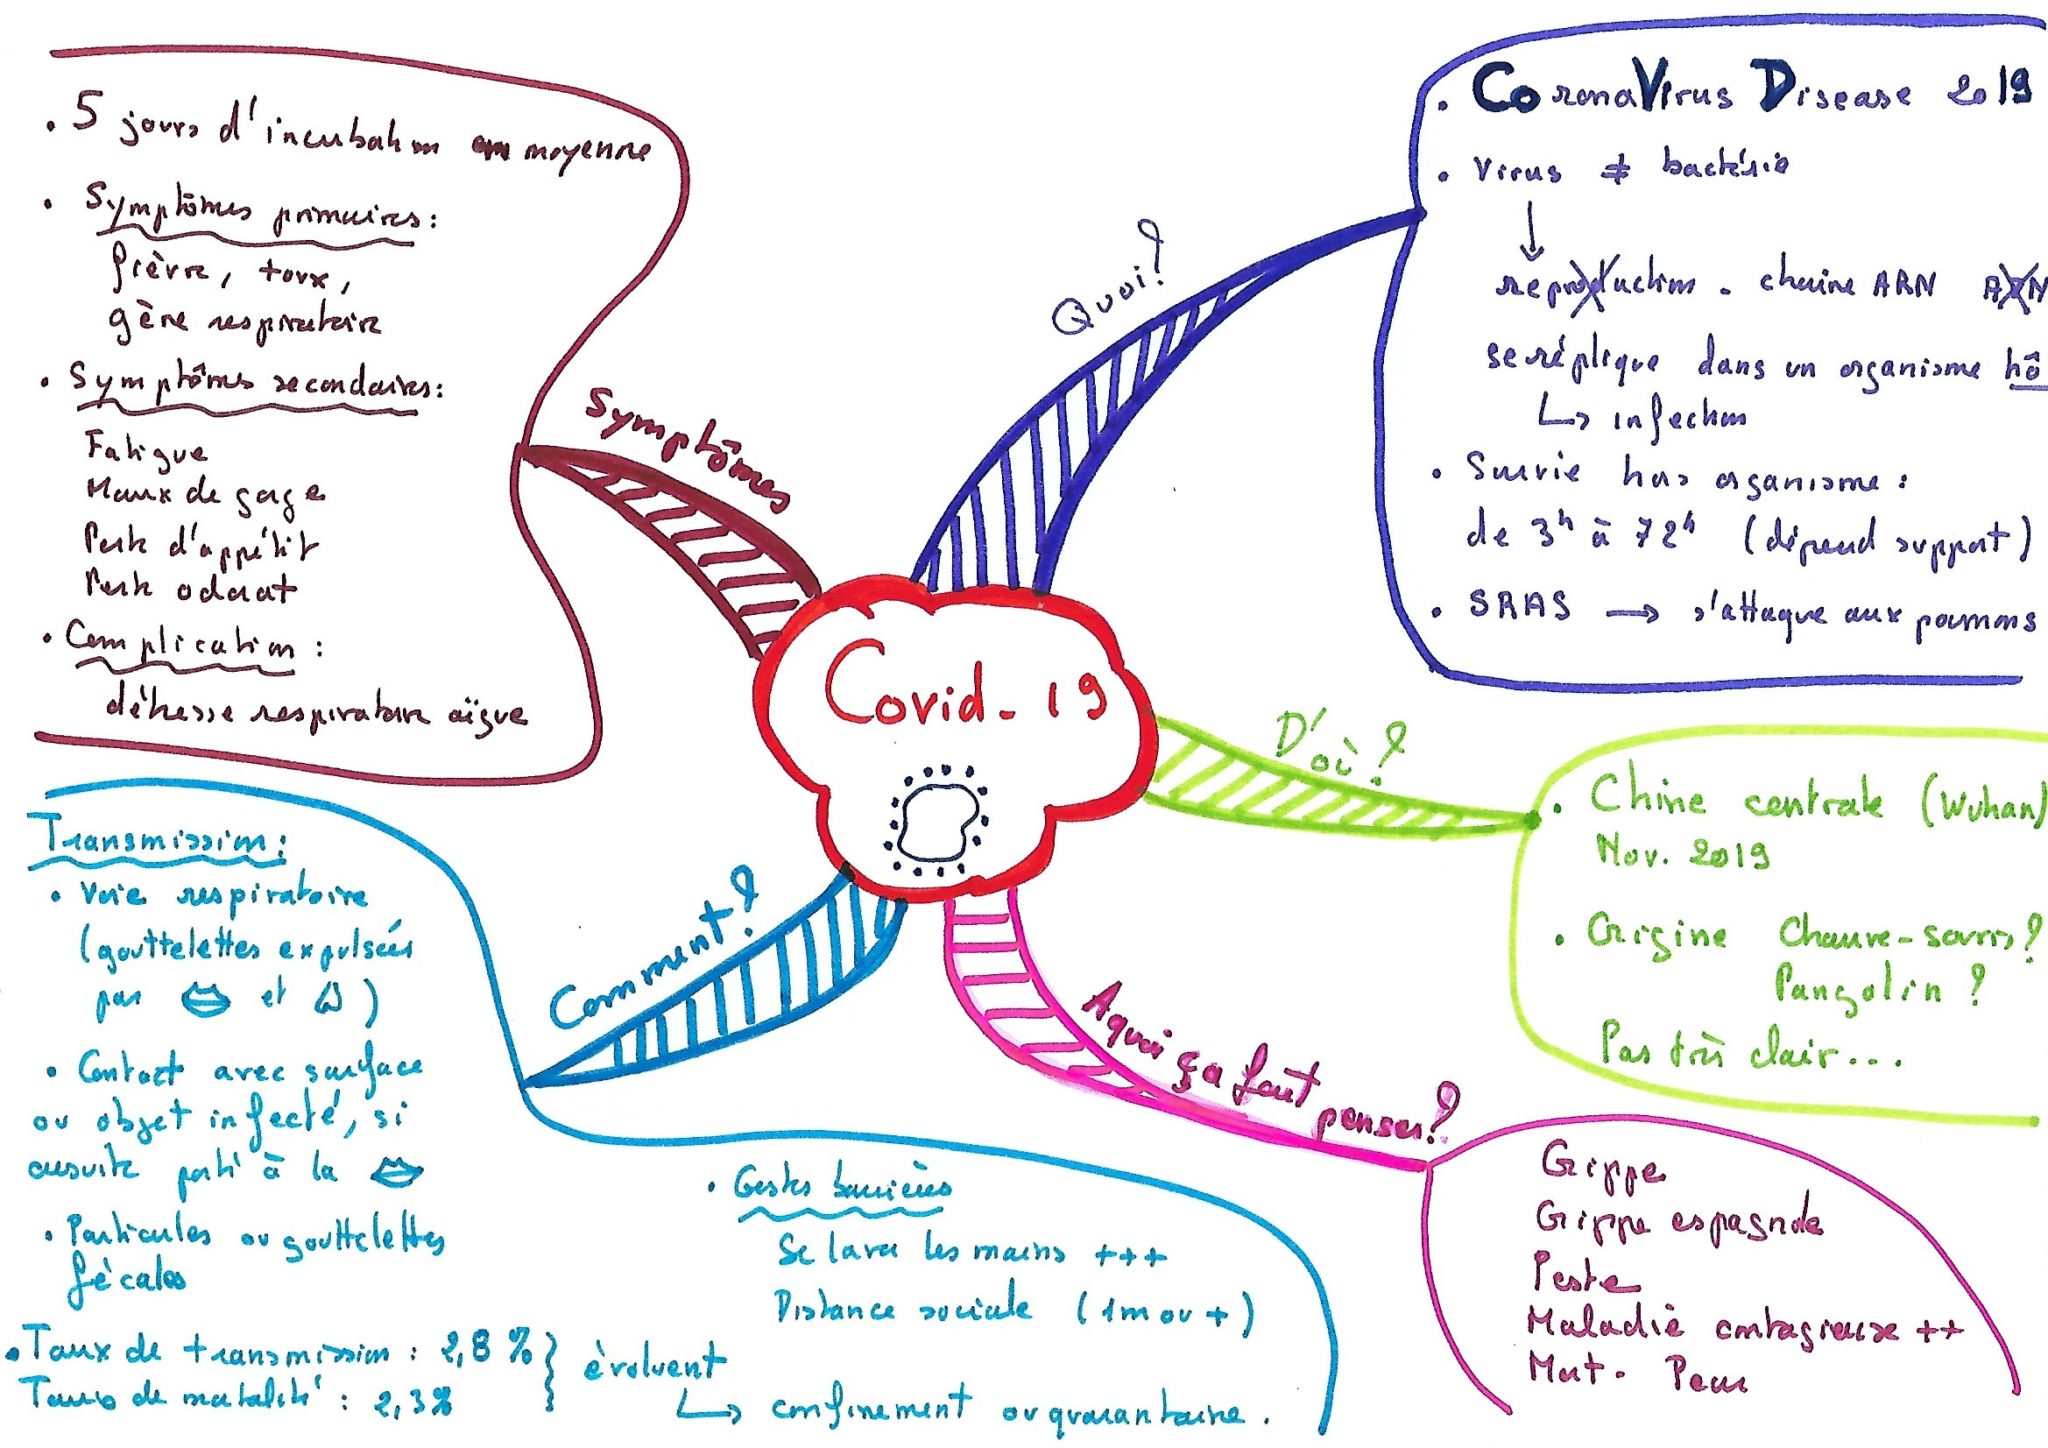 Covid-19
Quoi?
. CoronaVirus Disease 2019
. Virus ≠ bactérie
↓
reproduction - chaîne ARN ADN
se réplique dans un organisme hô
↳ infection
. Survie hors organisme :
de 3h à 72h (dépend support)
. SRAS → s'attaque aux poumons
D'où?
. Chine centrale (Wuhan)
Nov. 2019
. Origine Chauve-souris?
Pangolin ?
Pas très clair...
A quoi ça fait penser?
Grippe
Grippe espagnole
Peste
Maladie contagieuse ++
Mort - Peur
Comment?
Transmission :
. Voie respiratoire
(gouttelettes expulsées
par et )
. Contact avec surface
ou objet infecté, si
ensuite porté à la
. Particules ou gouttelettes
fécales
. Taux de transmission : 2,8 %
Taux de mortalité : 2,3%
évoluent
↳ confinement ou quarantaine.
. Gestes barrières
Se laver les mains +++
Distance sociale (1m ou +)
Symptômes
. 5 jours d'incubation en moyenne
. Symptômes primaires :
fièvre, toux,
gêne respiratoire
. Symptômes secondaires :
Fatigue
Maux de gorge
Perte d'appétit
Perte odorat
. Complication :
détresse respiratoire aïgue